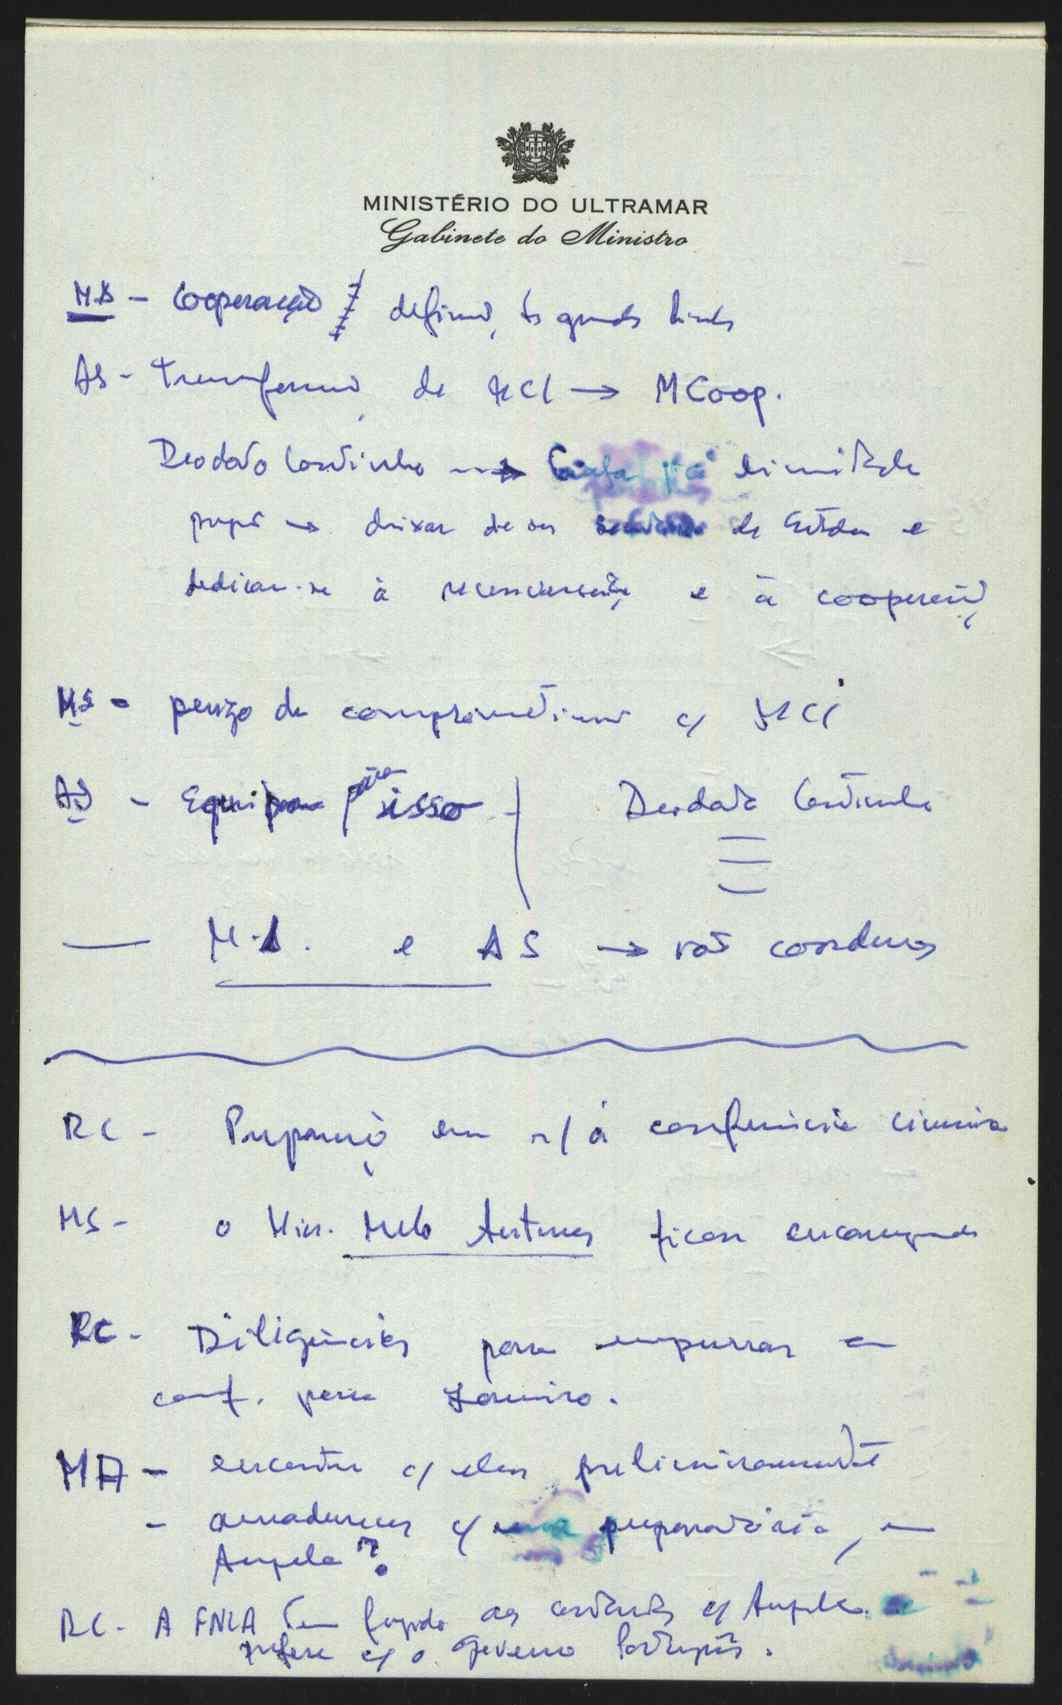 MINISTÉRIO DO ULTRAMAR
Gabinete do Ministro
MS - Cooperação definir as grandes linhas
AS - Transformação de MCI → MCoop.
Deodato Coutinho → limitada
propõe → deixar de ser de Estado e
dedicar-se à e à cooperação
MS - perigo de comprometimento c/ MCI
AS - Equipa para isso Deodato Coutinho
— M.S. e AS → vão coordenar
RC - Preparação em r/ à conferência cimeira
MS - o Min. Melo Antunes ficou encarregado
RC - Diligências para empurrar a
conf. para Janeiro.
MA - encontro c/ eles preliminarmente
- c/ uma preparatória, em
Angola?
RC - A FNLA tem fugido aos contactos c/ Angola.
prefere c/ o Governo Português.